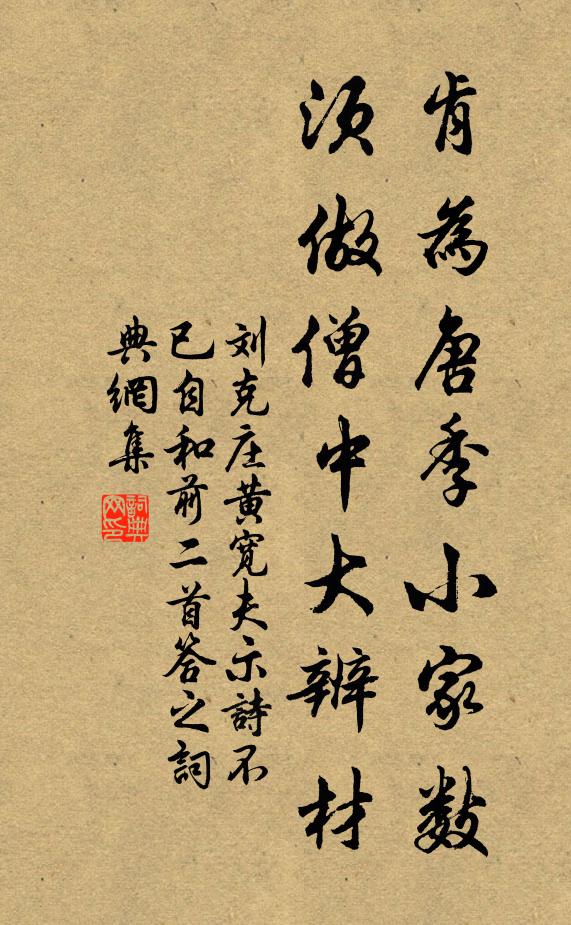 肯為唐季小家数
須做僧中大辨材
刘克庄黄寛夫示詩不
已自和前二首答之詞
典網集
詞典网印